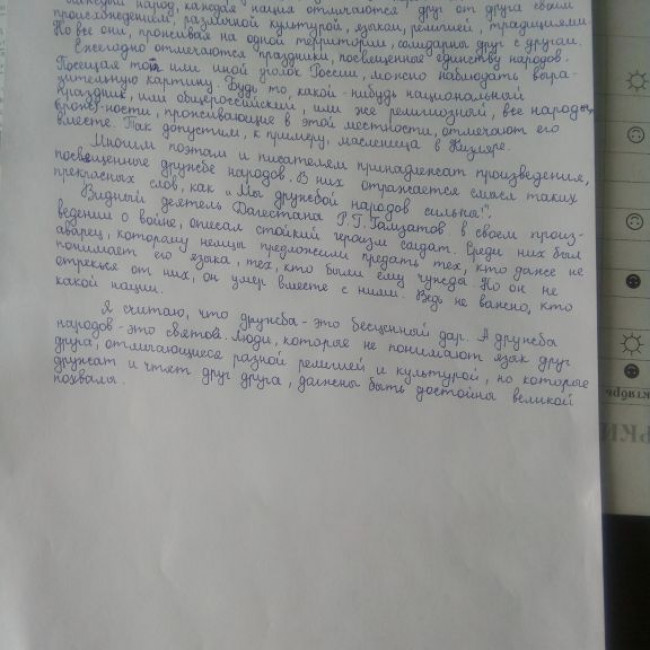 народ, каждая нация отличаются друг от друга своим
происхождением, различной культурой, языком, религией, традициями.
Но все они, проживая на одной территории, солидарны друг с другом.
Ежегодно отмечаются праздники, посвещенные единству народов.
Посещая тот или иной уголок России, можно наблюдать выра-
зительную картину. Будь то, какой-нибудь национальной
праздник, или общероссийский, или же религиозный, все народы,
народности, проживающие в этой местности, отмечают его
вместе. Так допустим, к примеру, масленица в Кизляре.
Многим поэтам и писателям принадлежат произведения,
посвещенные дружбе народов. В них отражается смысл таких
прекрасных слов, как „Мы дружбой народов сильны!".
Видный деятель Дагестана Р.Г.Гамзатов в своем произ-
ведении о войне, описал стойкий героизм солдат. Среди них был
аварец, которому немцы предложили предать тех, кто даже не
понимает его языка, тех, кто были ему чужды. Но он не
отрекся от них, он умер вместе с ними. Ведь не важно, кто
какой нации.
Я считаю, что дружба - это бесценный дар. А дружба
народов - это святое. Люди, которые не понимают язык друг
друга, отличающиеся разной религией и культурой, но которые
дружат и чтят друг друга, должны быть достойны великой
похвалы.
ктябрь
РКИ